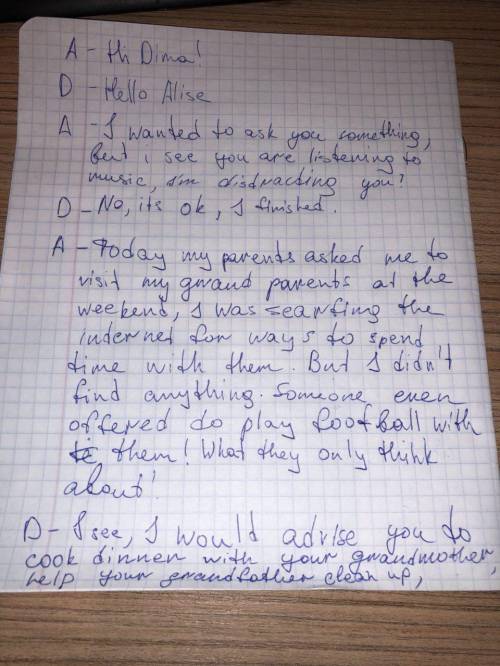 A - Hi Dima!
D - Hello Alise
A - I wanted to ask you something,
but i see you are listening to
music, I'm distracting you?
D - No, its ok, I finished.
A - Today my parents asked me to
visit my grand parents at the
weekend, I was searfing the
internet for ways to spend
time with them. But I didn't
find anything. Someone even
offered do play football with
them! What they only think
about!
D - I see, I would advise you to
cook dinner with your grandmother,
help your grandfather clean up,